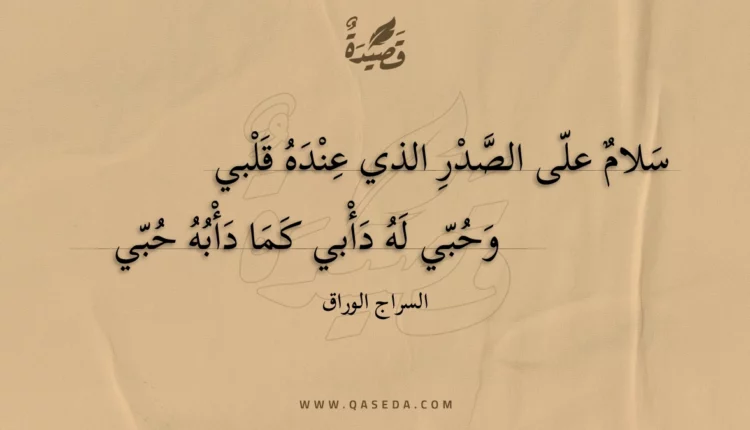 قَصِيْدَةٌ
سَلامٌ علّى الصَّدْرِ الذي عِنْدَهُ قَلْبي
وَحُبّي لَهُ دَأْبي كَمَا دَأْبُهُ حُبّي
السراج الوراق
WWW.QASEDA.COM